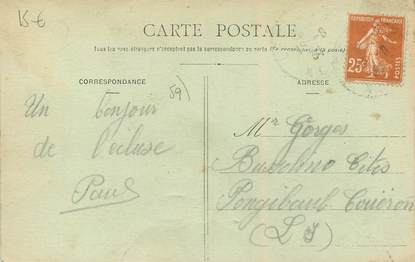 15-6
CARTE POSTALE
Tous les pays étrangers n'acceptent pas la correspondance au recto (Se renseigner à la poste)
CORRESPONDANCE
ADRESSE
RÉPUBLIQUE FRANÇAISE
25c
POSTES
59)
Un bonjour
de l'écluse
Paul
Mr Gorges
Cités
Pongibaud Couëron
(L I)